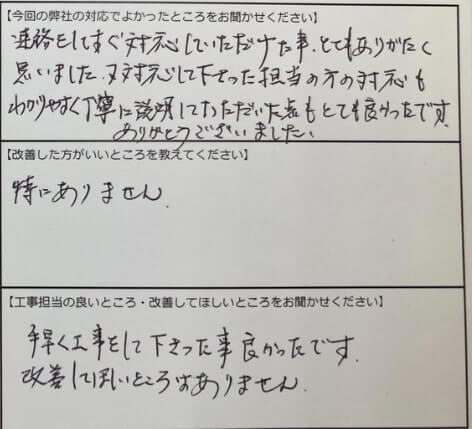 【今回の弊社の対応でよかったところをお聞かせください】
連絡をしてすぐ対応していただけた事、とてもありがたく
思いました。又対応して下さった担当の方の対応も
わかりやすく丁寧に説明していただいた点もとても良かったです。
ありがとうございました。
【改善した方がいいところを教えてください】
特にありません。
【工事担当の良いところ・改善してほしいところをお聞かせください】
手早く工事をして下さった事良かったです。
改善してほしいところはありません。